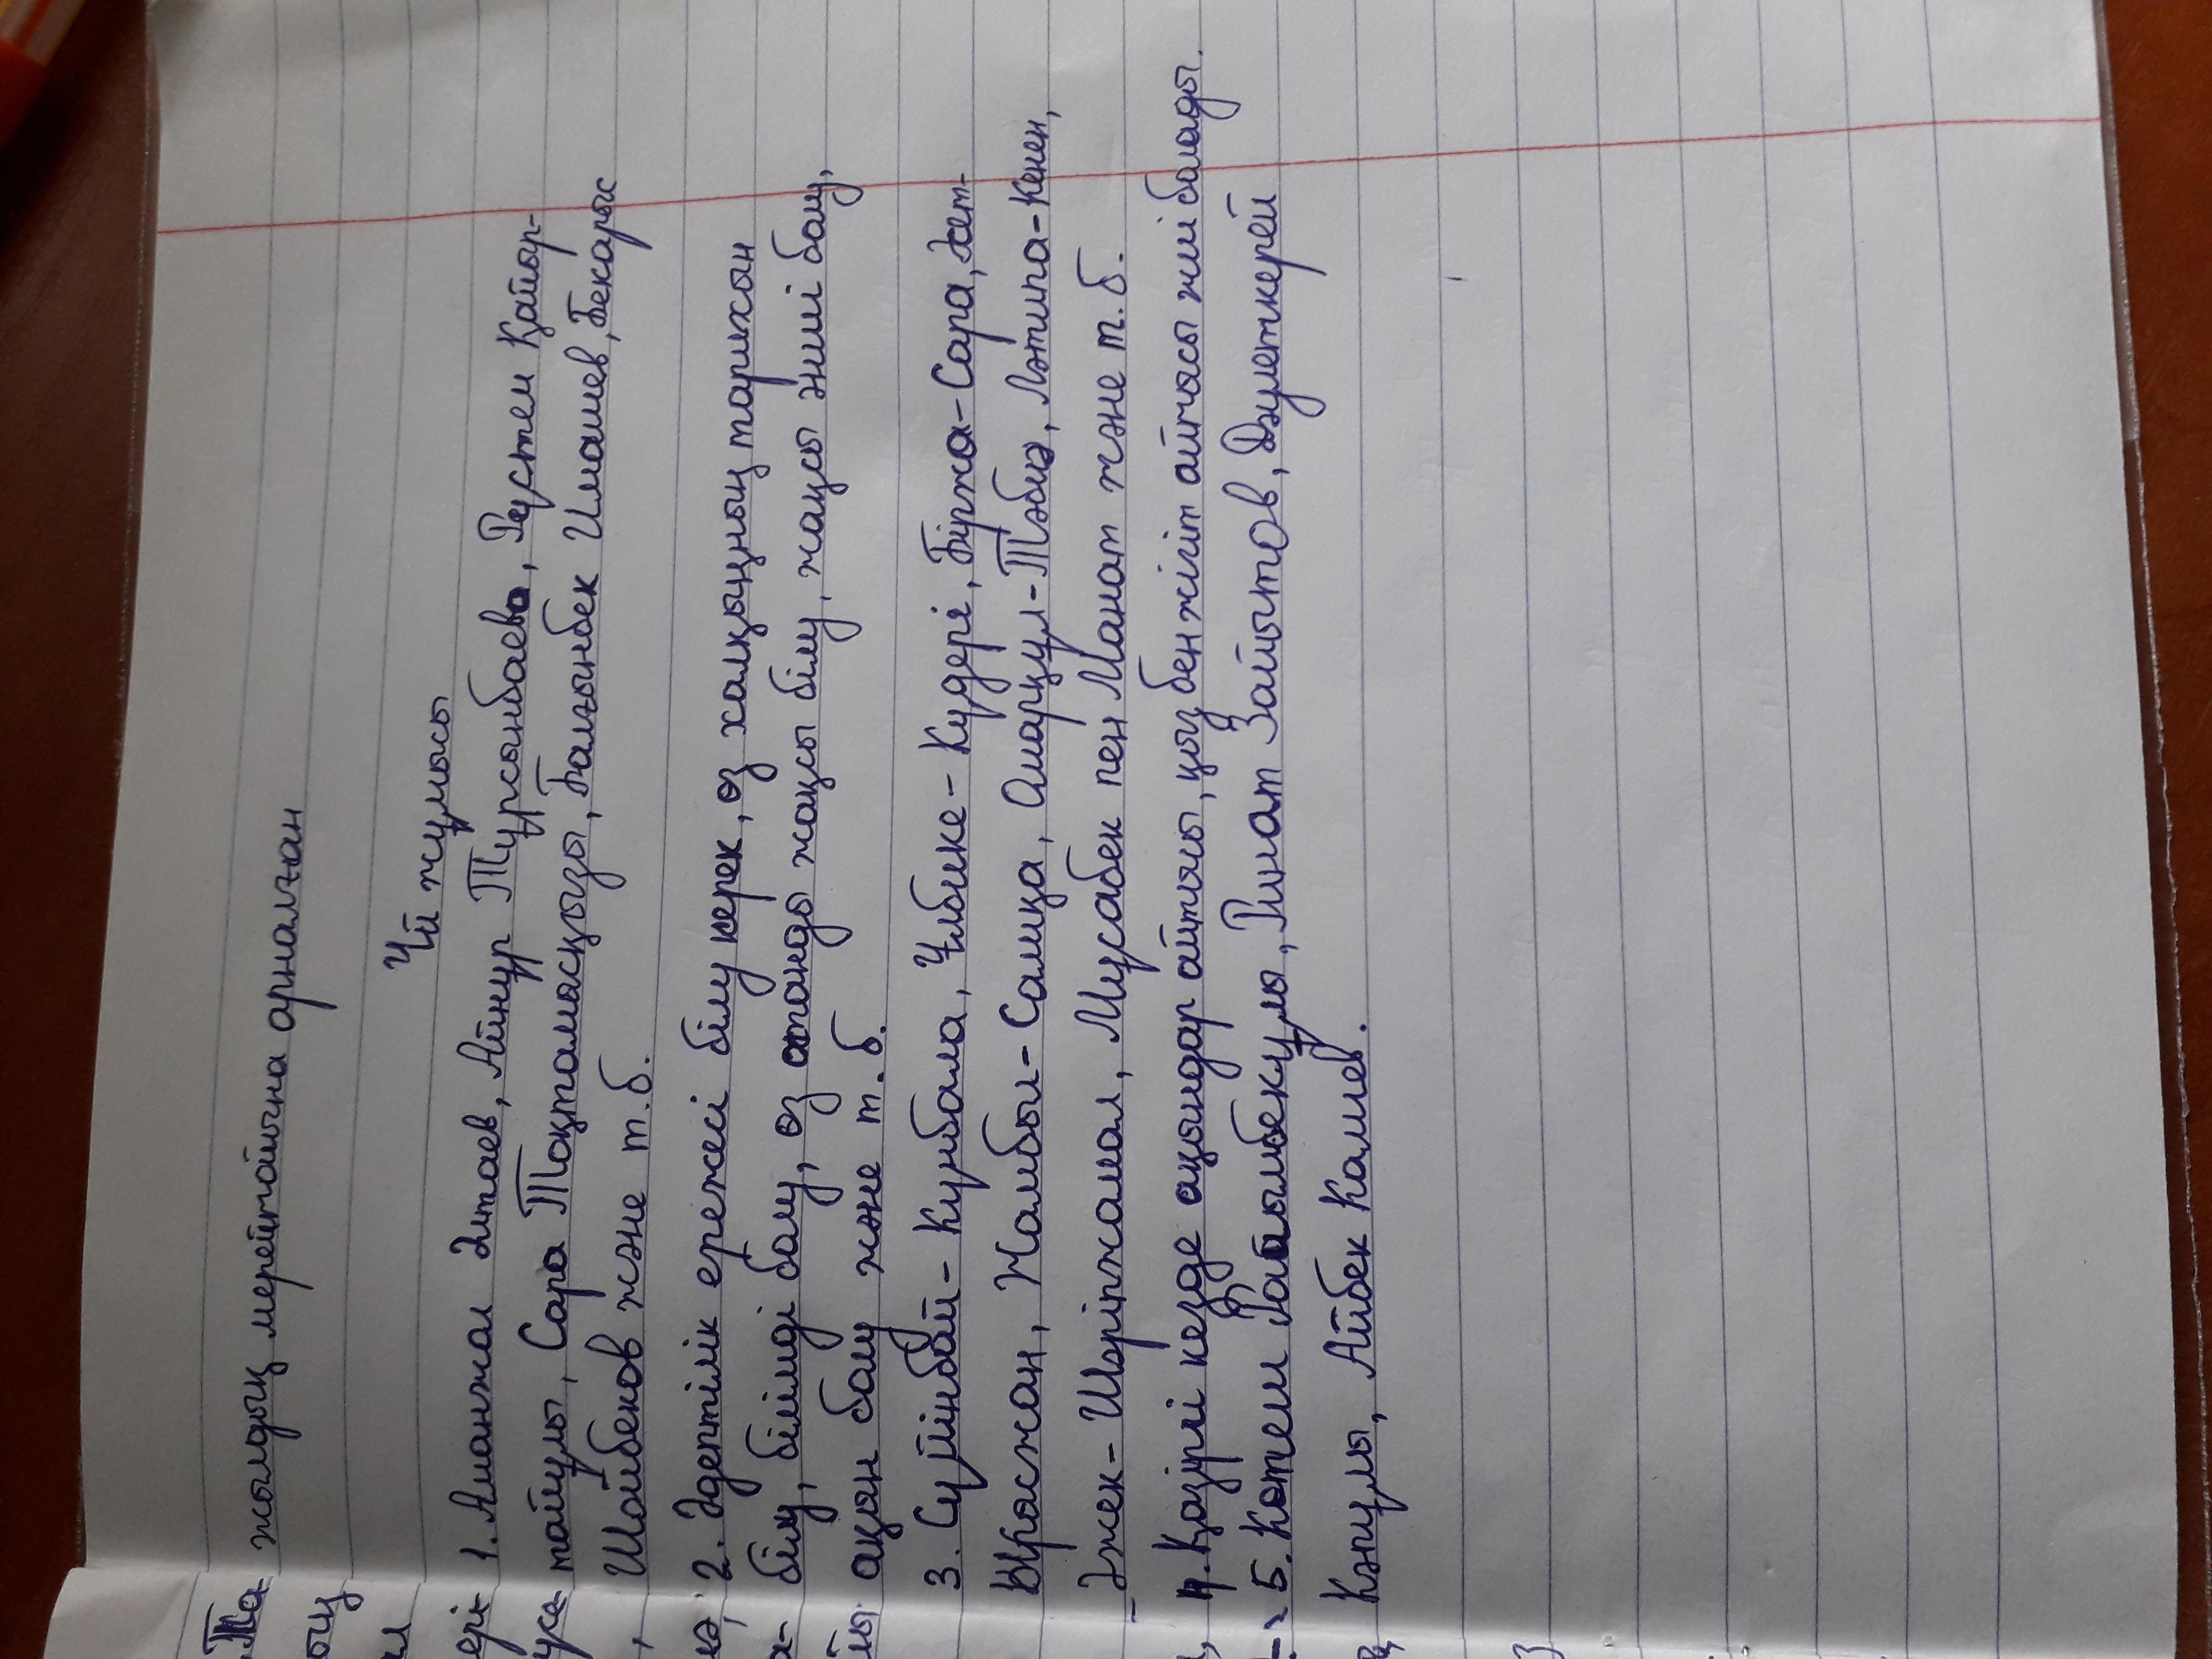 жылдық мерейтойына арналған
Үй жұмысы
1. Аманжол Әлтаев, Айнұр Тұрсынбаева, Рүстем Қайыр-
тайұлы, Сара Тоқтамысқызы, Балғынбек Имашев, Бекарыс
Шойбеков және т.б.
2. Әдептілік ережесі білу керек, өз халқының тарихын
білу, білімді болу, өз отанды жақсы білу, жақсы әнші болу,
ақын болу және т.б.
3. Сүйінбай - Күнбала, Ұлбике - Күдері, Біржа - Сара, Әсет-
Ырысжан, Жамбыл - Сайқа, Омарқұл - Тәбия, Ләтипа - Кенен,
Әжек - Шәріпжамал, Мұсабек пен Манат және т.б.
4. Қазіргі кезде ақындар айтысы, қыз бен жігіт айтысы жиі болады.
5. Көтеш Райымбекұлы, Ринат Зайытов, Дәулеткерей
Кәпұлы, Айбек Калиев.